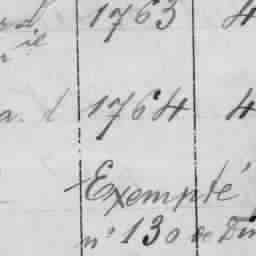 1763 4
1764 4
Exempté
n° 130 de